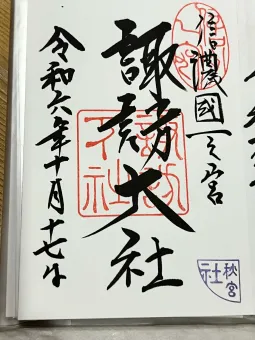 信濃國一之宮
諏訪大社
令和六年十月十七日
諏訪大社
秋宮
社